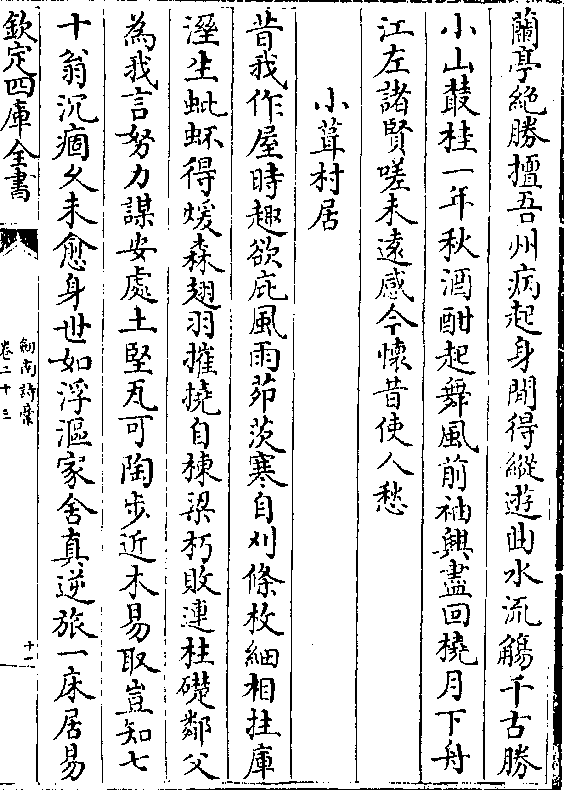 蘭亭絶勝擅吾州病起身閒得縱遊曲水流觴千古勝
小山叢桂一年秋酒酣起舞風前袖興盡回橈月下舟
江左諸賢嗟未遠感今懷昔使人愁
小葺村居
昔我作屋時趣欲庇風雨茆茨寒自刈條枚細相拄庫
溼生蚍蚥得煖森翅羽摧撓自棟梁朽敗連柱礎鄰父
為我言努力謀安處土堅瓦可陶步近木易取豈知七
十翁沉痼久未愈身世如浮漚家舍真逆旅一床居易
欽定四庫全書
劍南詩稾
卷二十三
十一